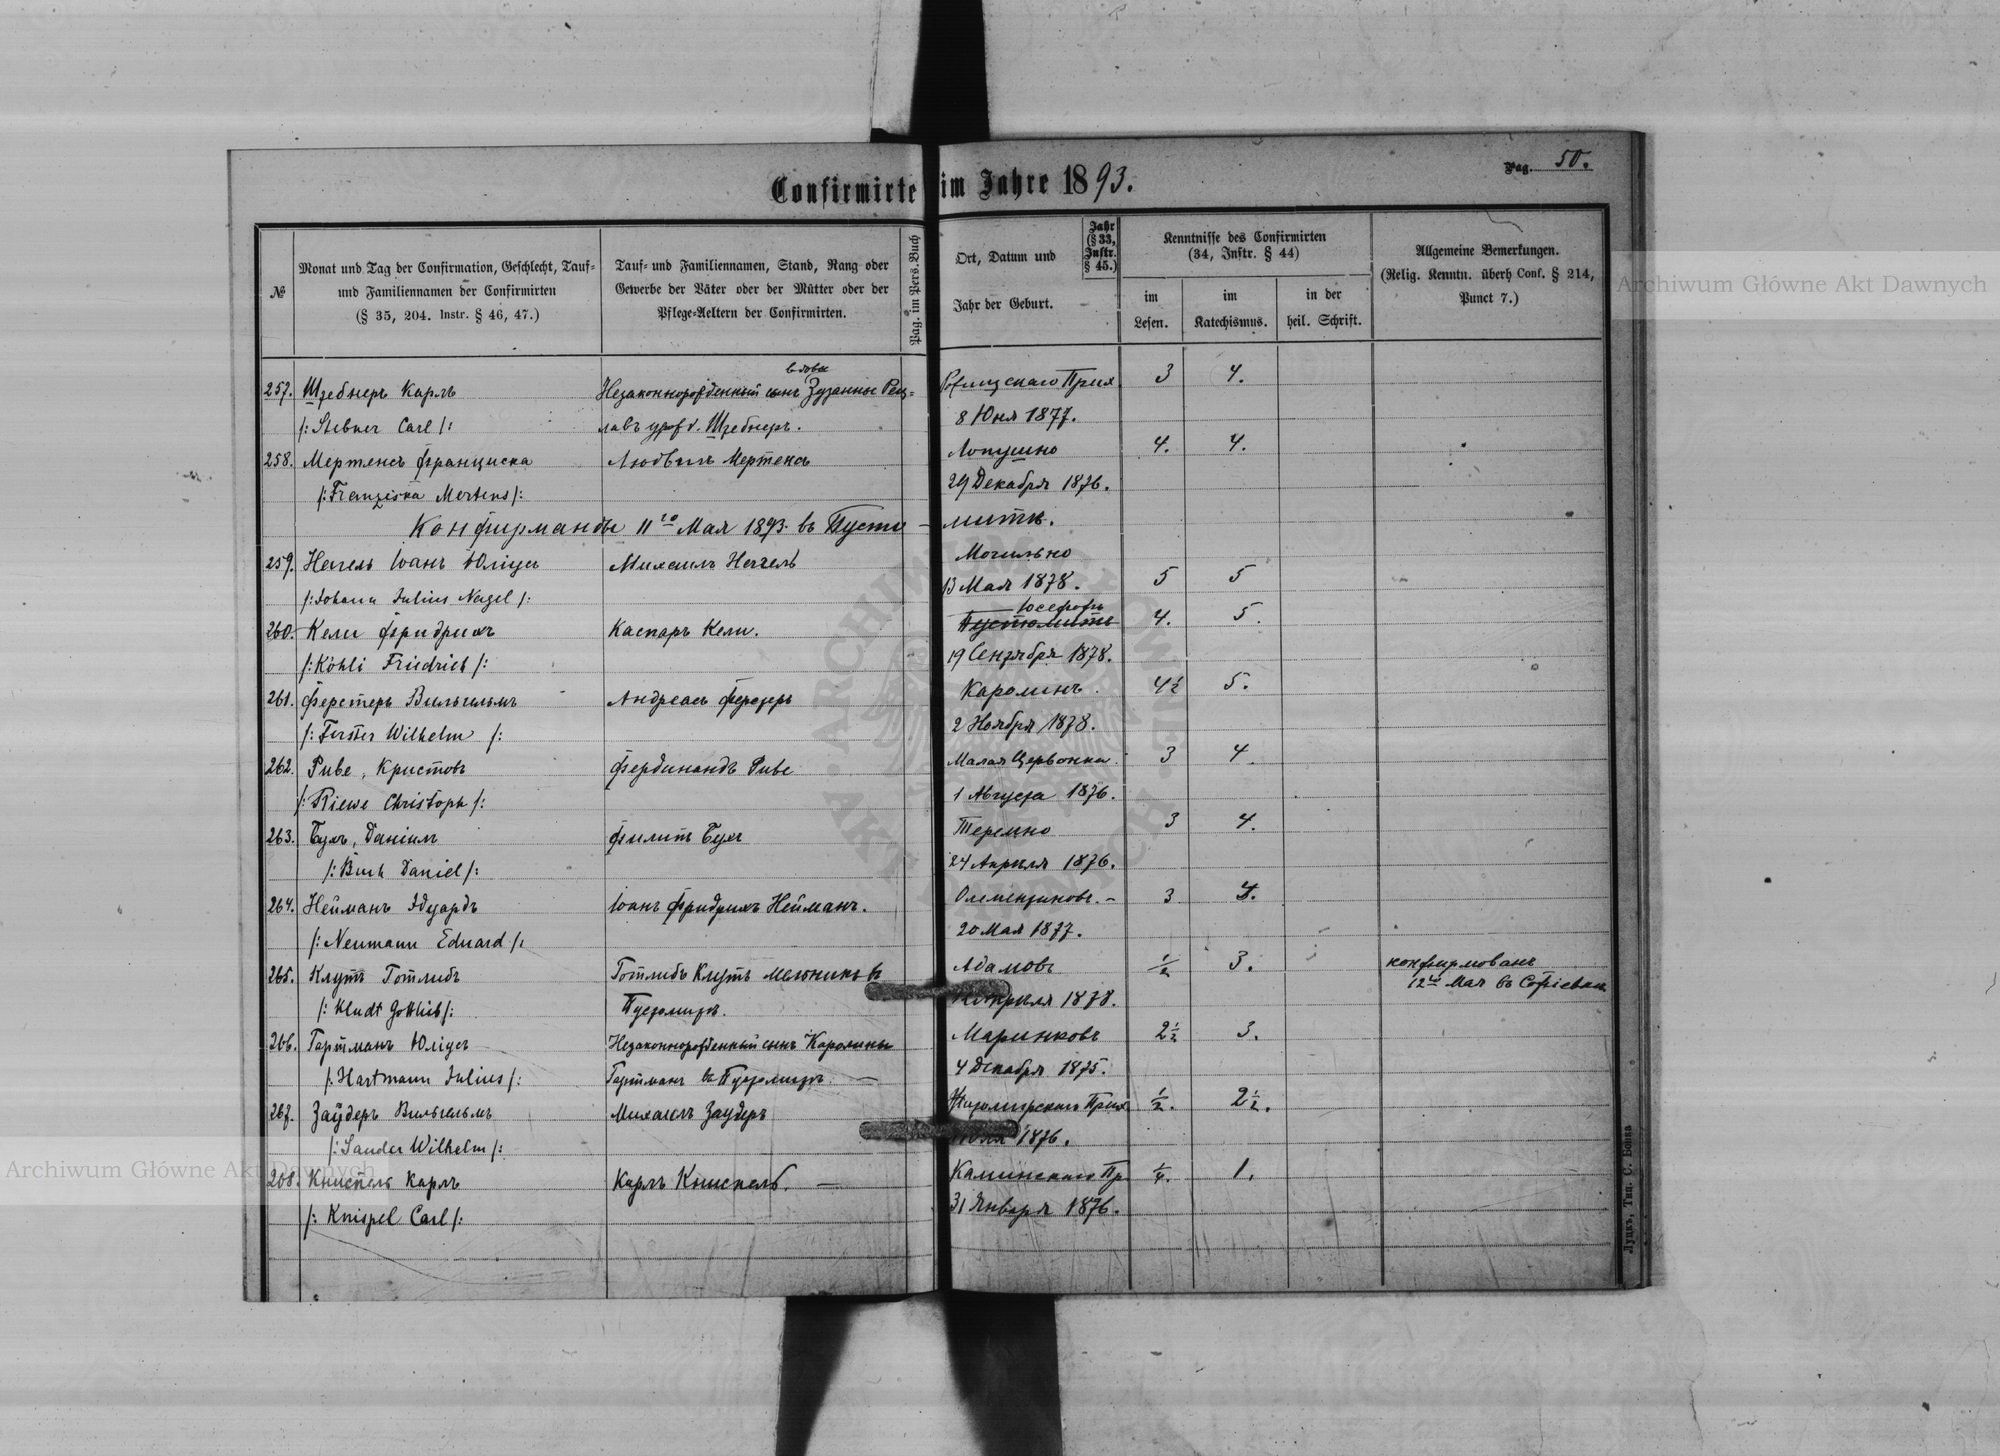 Pag. 50.
Confirmirte im Jahre 1893.
№
Monat und Tag der Confirmation, Geschlecht, Tauf-
und Familiennamen der Confirmirten
(§ 35, 204. Instr. § 46, 47.)
Tauf- und Familiennamen, Stand, Rang oder
Gewerbe der Väter oder der Mütter oder der
Pflege-Aeltern der Confirmirten.
Pag. im Pers. Buch
Ort, Datum und
Jahr der Geburt.
Jahr
(§ 33,
Instr.
§ 45.)
Kenntnisse des Confirmirten
(34, Instr. § 44)
im
Lesen.
im
Katechismus.
in der
heil. Schrift.
Allgemeine Bemerkungen.
(Relig. Kenntn. überh Conf. § 214,
Punct 7.)
вдовы
257. Штебнеръ Карлъ Незаконнорожденный сынъ Зузанны Рец- Рожищскаго Прих 3 4.
/: Stebner Carl /: лавъ урожд. Штебнеръ. 8 Юня 1877.
258. Мертенсъ Франциска Людвигъ Мертенсъ Лопушно 4. 4.
/: Franziska Mertens /: 29 Декабря 1876.
Конфирманды 11го Мая 1893. въ Пусто-митъ.
259. Нагель Іоанъ Юліусъ Михаилъ Нагель Могильно
/: Johann Julius Nagel /: 13 Мая 1878. 5 5
Юсефовъ
260. Кели Фридрихъ Каспаръ Кели. Пустомитъ 4. 5.
/: Köhli Friedrich /: 19 Сентября 1878.
261. Ферстеръ Вильгельмъ Андреасъ Ферстеръ Каролинъ. 4½ 5.
/: Ferster Wilhelm /: 2 Ноября 1878.
262. Риве, Кристовъ Фердинандъ Риве Малая Цервонка 3 4.
/: Riewe Christoph /: 1 Августа 1876.
263. Бухъ, Даніилъ Филипъ Бухъ Теремно 3 4.
/: Buch Daniel /: 24 Апрыля 1876.
264. Нейманъ Эдуардъ Іоанъ Фридрихъ Нейманъ. 3 4.
/: Neumann Eduard /: 20 Мая 1877.
265. Клутъ Готлибъ Готлибъ Клутъ мельникъ въ Адамовъ ½ 3. конфирмованъ
/: Kludt Gottlieb /: Пустомитъ. Апрыля 1878. 12го Мая въ Софіевкы
266. Гартманъ Юліусъ Незаконнорожденный сынъ Каролины Маринковъ 2½ 3.
/: Hartmann Julius /: Гартманъ въ Пустомитъ. 4 Декабря 1875.
267. Заудеръ Вильгельмъ Михаилъ Заудеръ Житомирскаго Прих ½. 2½.
/: Sauder Wilhelm /: 1876.
268. Книспель Карлъ Карлъ Книспель. Каминскаго Пр ¼. 1.
/: Knispel Carl /: 31 Января 1876.
Луцкъ, Тип. С. Бонка
Archiwum Główne Akt Dawnych
Archiwum Główne Akt Dawnych